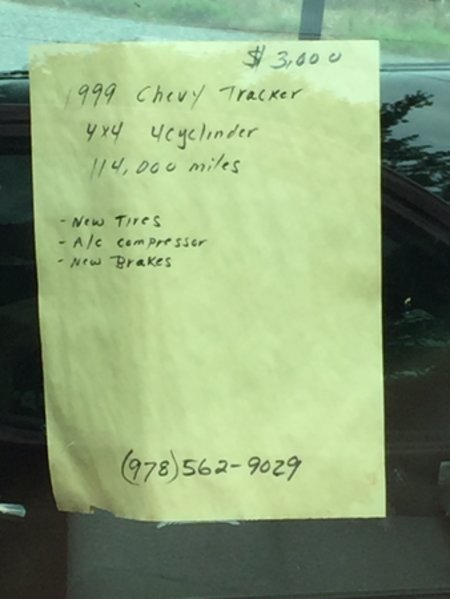 $ 3,000
1999 Chevy Tracker
4x4 4cyclinder
114,000 miles
- New Tires
- A/c compressor
- New Brakes
(978)562-9029